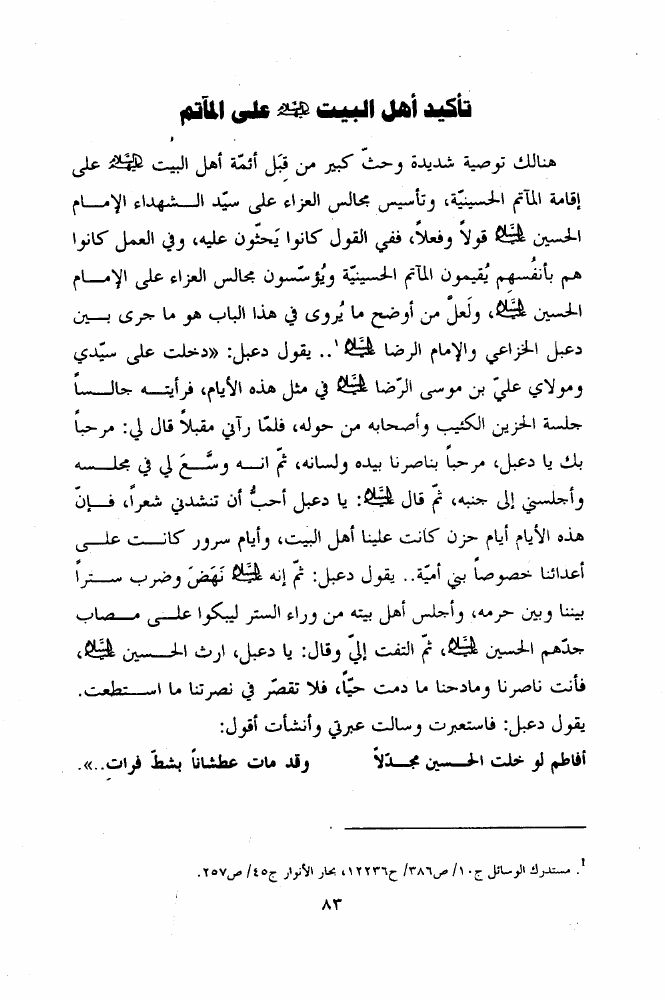 تأكيد أهل البيت عليهم السلام على المآتم
هنالك توصية شديدة وحثّ كبير من قِبَل أئمّة أهل البيت عليهم السلام على
إقامة المآتم الحسينيّة، وتأسيس مجالس العزاء على سيّد الشهداء الإمام
الحسين عليه السلام قولاً وفعلاً، ففي القول كانوا يَحثّون عليه، وفي العمل كانوا
هم بأنفُسهم يُقيمون المآتم الحسينيّة ويُؤسّسون مجالس العزاء على الإمام
الحسين عليه السلام، ولَعلّ من أوضح ما يُروى في هذا الباب هو ما جرى بين
دعبل الخزاعي والإمام الرضا عليه السلام¹.. يقول دعبل: «دخلت على سيّدي
ومولاي عليّ بن موسى الرّضا عليه السلام في مثل هذه الأيام، فرأيته جالساً
جلسة الحزين الكئيب وأصحابه من حوله، فلمّا رآني مقبلاً قال لي: مرحباً
بك يا دعبل، مرحباً بناصرنا بيده ولسانه، ثمّ انه وسَّعَ لي في مجلسه
وأجلسني إلى جنبه، ثمّ قال عليه السلام: يا دعبل أحبُّ أن تنشدني شعراً، فإنّ
هذه الأيام أيام حزن كانت علينا أهل البيت، وأيام سرور كانت على
أعدائنا خصوصاً بني أميّة.. يقول دعبل: ثمّ إنه عليه السلام نَهَضَ وضرب ستراً
بيننا وبين حرمه، وأجلس أهل بيته من وراء الستر ليبكوا على مصاب
جدّهم الحسين عليه السلام، ثمّ التفت إليّ وقال: يا دعبل، ارث الحسين عليه السلام،
فأنت ناصرنا ومادحنا ما دمت حيّاً، فلا تقصّر في نصرتنا ما استطعت.
يقول دعبل: فاستعبرت وسالت عبرتي وأنشأت أقول:
أفاطم لو خلت الحسين مجدّلاً وقد مات عطشاناً بشطّ فرات..».
¹. مستدرك الوسائل ج١٠/ ص٣٨٦/ ح١٢٢٣٦، بحار الأنوار ج٤٥/ ص٢٥٧.
٨٣